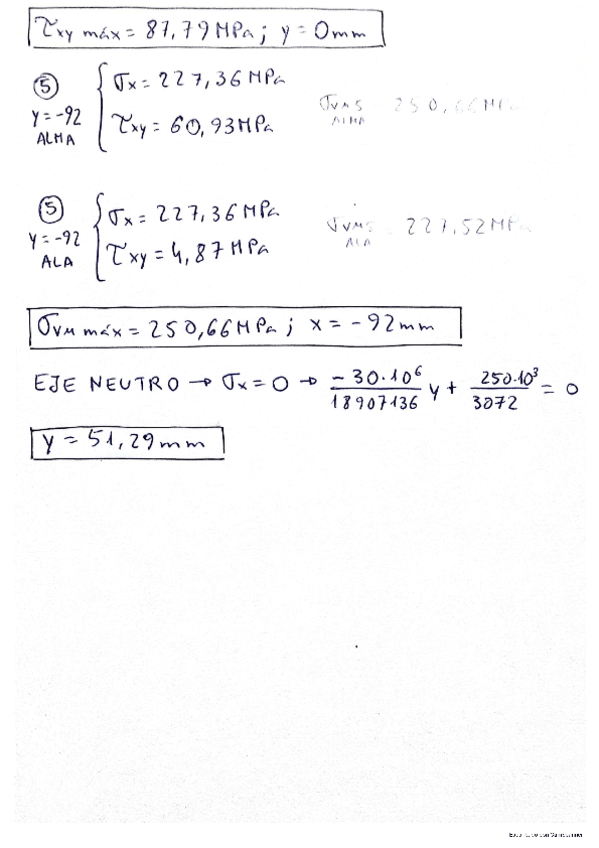 τxy máx = 87,79 MPa ; y = 0mm
⑤ y = -92 ALMA { σx = 227,36 MPa
τxy = 60,93 MPa
σVM5 ALMA = 250,66 MPa
⑤ y = -92 ALA { σx = 227,36 MPa
τxy = 4,87 MPa
σVM5 ALA = 227,52 MPa
σVM máx = 250,66 MPa ; x = -92 mm
EJE NEUTRO → σx = 0 → -30·10⁶/18907136 y + 250·10³/3072 = 0
y = 51,29 mm